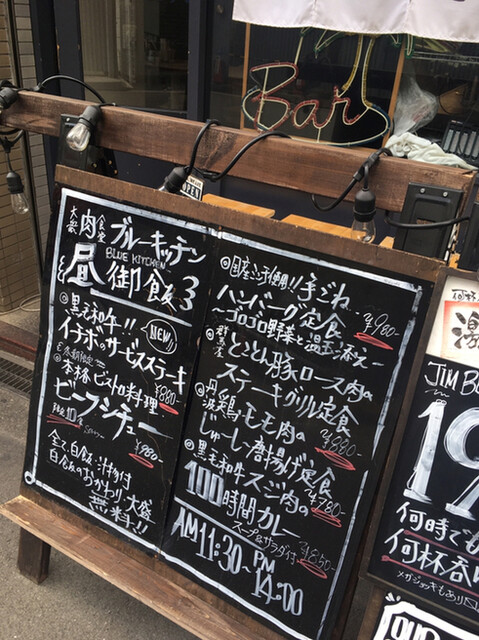 Bar
OPEN
大衆肉食堂 ブルーキッチン
BLUE KITCHEN
昼御飯
◎黒毛和牛!! NEW
イチボのサービスステーキ
¥880-
◎本格ビストロ料理
ビーフシチュー
¥980-
全て白飯・汁物付
白飯のおかわり・大盛
無料!!
◎国産 使用!!手ごね
ハンバーグ定食 ¥780-
〜ゴロゴロ野菜と温玉添え〜
◎群馬産 とことん豚ロース肉の
ステーキグリル定食
¥880-
◎丹波鶏モモ肉の
じゅーしー唐揚げ定食
¥780-
◎黒毛和牛スジ肉の
100時間カレー
スープ&サラダ付 ¥850-
AM11:30〜PM14:00
JIM B
19
何時でも
何杯呑
メガジョッキもあり